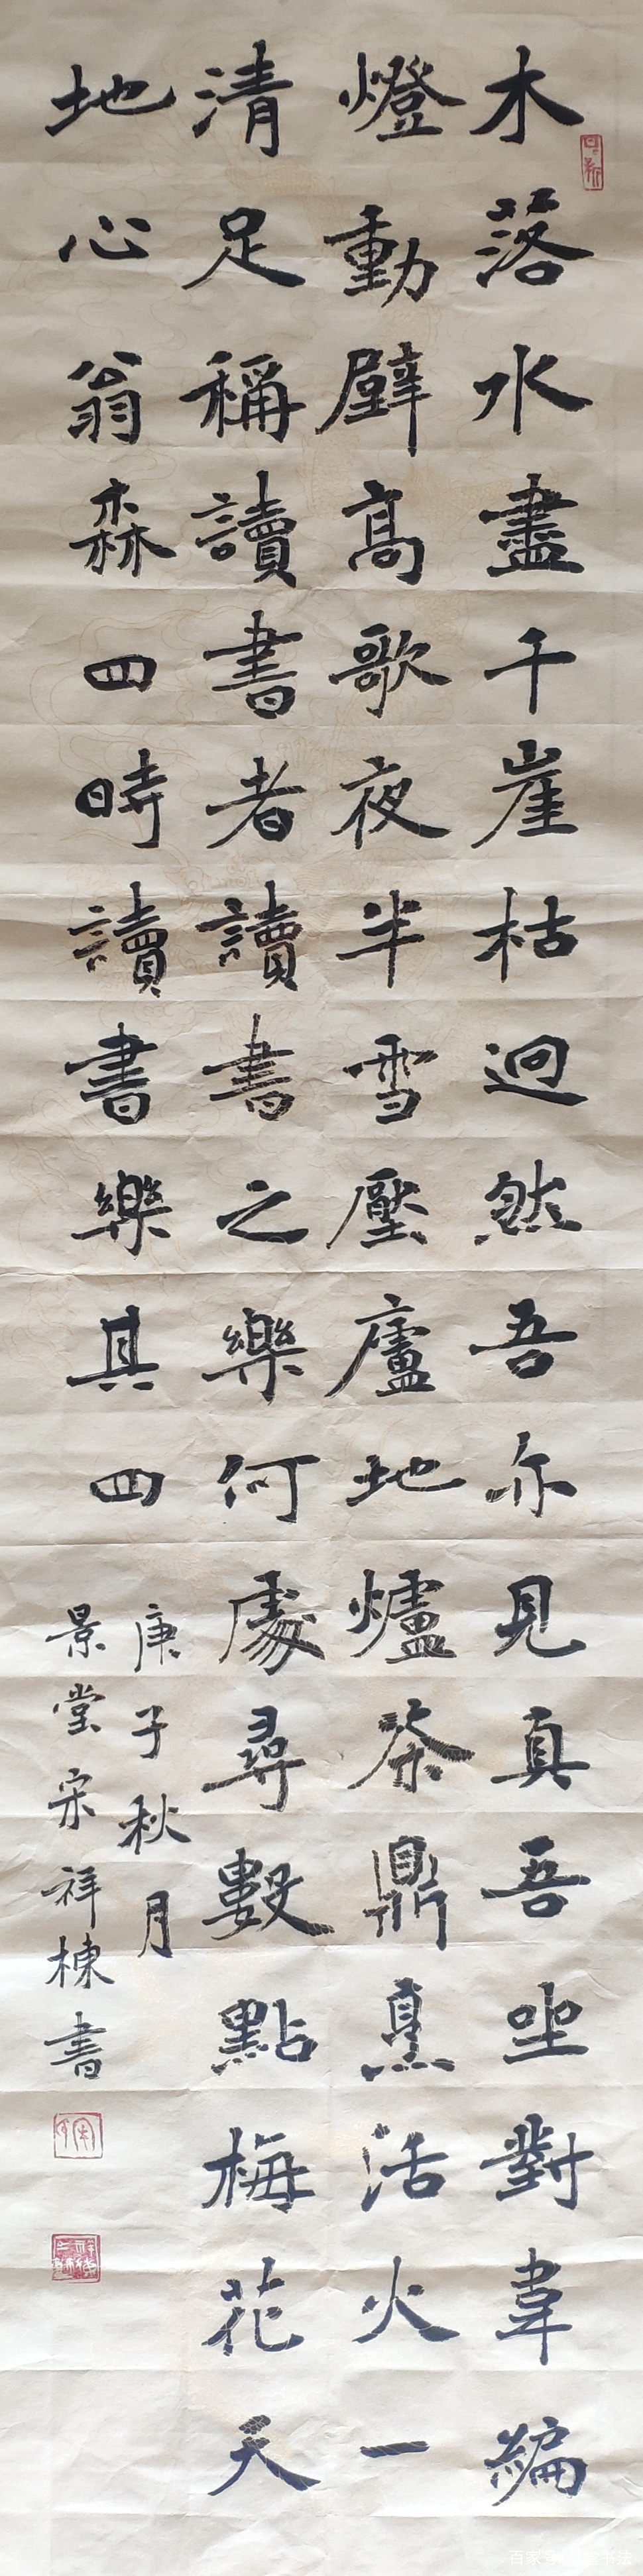 木落水盡千崖枯迥然吾亦見真吾坐對韋編
燈動壁高歌夜半雪壓廬地爐茶鼎烹活火一
清足稱讀書者讀書之樂何處尋數點梅花天
地心翁森四時讀書樂其四
庚子秋月
景堂宋祥棟書